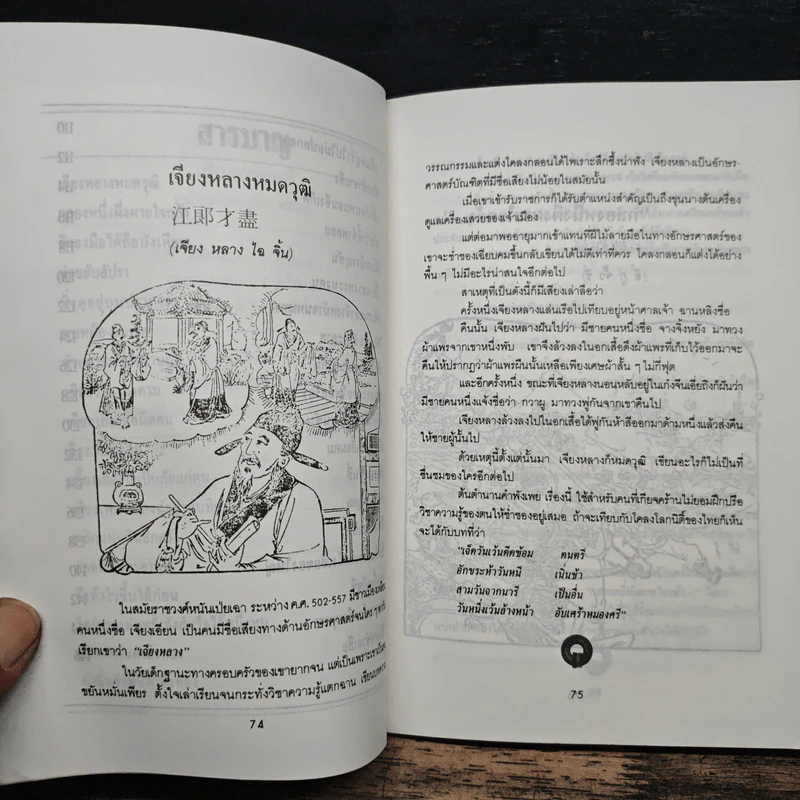 เจียงหลางหมดวุฒิ
江郎才盡
(เจียง หลาง ไฉ จิ้น)
ในสมัยราชวงศ์หนันเปยเฉา ระหว่าง ค.ศ. 502-557 มีชาวเมือง
คนหนึ่งชื่อ เจียงเอียน เป็นคนมีชื่อเสียงทางด้านอักษรศาสตร์จนใคร ๆ
เรียกเขาว่า "เจียงหลาง"
ในวัยเด็กฐานะทางครอบครัวของเขายากจน แต่เป็นเพราะเขา
ขยันหมั่นเพียร ตั้งใจเล่าเรียนจนกระทั่งวิชาความรู้แตกฉาน เขียน
74
วรรณกรรมและแต่งโคลงกลอนได้ไพเราะลึกซึ้งน่าฟัง เจียงหลางเป็นอักษร-
ศาสตร์บัณฑิตที่มีชื่อเสียงไม่น้อยในสมัยนั้น
เมื่อเขาเข้ารับราชการก็ได้รับตำแหน่งสำคัญเป็นถึงขุนนางต้นเครื่อง
ดูแลเครื่องเสวยของเจ้าเมือง
แต่ต่อมาพออายุมากเข้าแทนที่ฝีไม้ลายมือในทางอักษรศาสตร์ของ
เขาจะช่ำชองเฉียบคมขึ้นกลับเขียนได้ไม่ดีเท่าที่ควร โคลงกลอนก็แต่งได้อย่าง
พื้น ๆ ไม่มีอะไรน่าสนใจอีกต่อไป
สาเหตุที่เป็นดังนี้ก็มีเสียงเล่าลือว่า
ครั้งหนึ่งเจียงหลางแล่นเรือไปเทียบอยู่หน้าศาลเจ้า ฉานหลิงซื่อ
คืนนั้น เจียงหลางฝันไปว่า มีชายคนหนึ่งชื่อ จางจิ้งหยัง มาทวง
ผ้าแพรจากเขาหนึ่งพับ เขาจึงล้วงลงในอกเสื้อดึงผ้าแพรที่เก็บไว้ออกมาจะ
คืนให้ปรากฏว่าผ้าแพรผืนนั้นเหลือเพียงเศษผ้าสั้น ๆ ไม่กี่ฟุต
และอีกครั้งหนึ่ง ขณะที่เจียงหลางนอนหลับอยู่ในเก๋งจีนเอียถิงก็ฝันว่า
มีชายคนหนึ่งแจ้งชื่อว่า กวาผู มาทวงพู่กันจากเขาคืนไป
เจียงหลางล้วงลงไปในอกเสื้อได้พู่กันห้าสีออกมาด้ามหนึ่งแล้วส่งคืน
ให้ชายผู้นั้นไป
ด้วยเหตุนี้ตั้งแต่นั้นมา เจียงหลางก็หมดวุฒิ เขียนอะไรก็ไม่เป็นที่
ชื่นชมของใครอีกต่อไป
ต้นตำนานคำพังเพย เรื่องนี้ ใช้สำหรับคนที่เกียจคร้านไม่ยอมฝึกปรือ
วิชาความรู้ของตนให้ช่ำชองอยู่เสมอ ถ้าจะเทียบกับโคลงโลกนิติ์ของไทยก็เห็น
จะได้กับบทที่ว่า
"เจ็ดวันเว้นดีดซ้อม ดนตรี
อักขระห้าวันหนี เนิ่นช้า
สามวันจากนารี เป็นอื่น
วันหนึ่งเว้นล้างหน้า อับเศร้าหมองศรี"
75